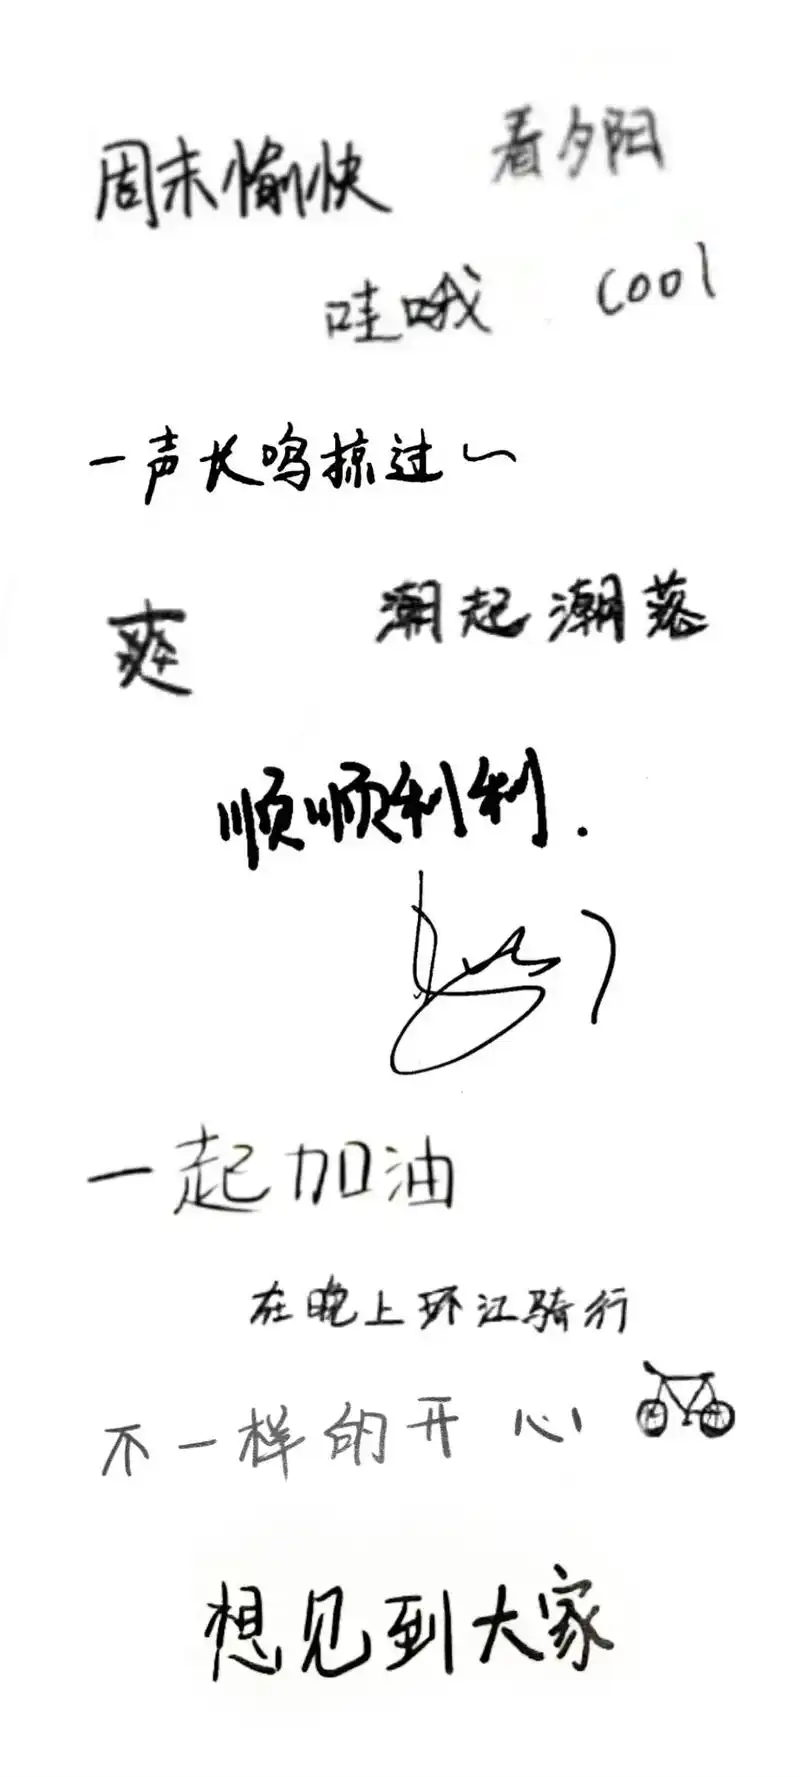 周末愉快
看夕阳
哇哦
cool
一声长鸣掠过~
爽
潮起潮落
顺顺利利.
一起加油
在晚上环江骑行
不一样的开心
想见到大家